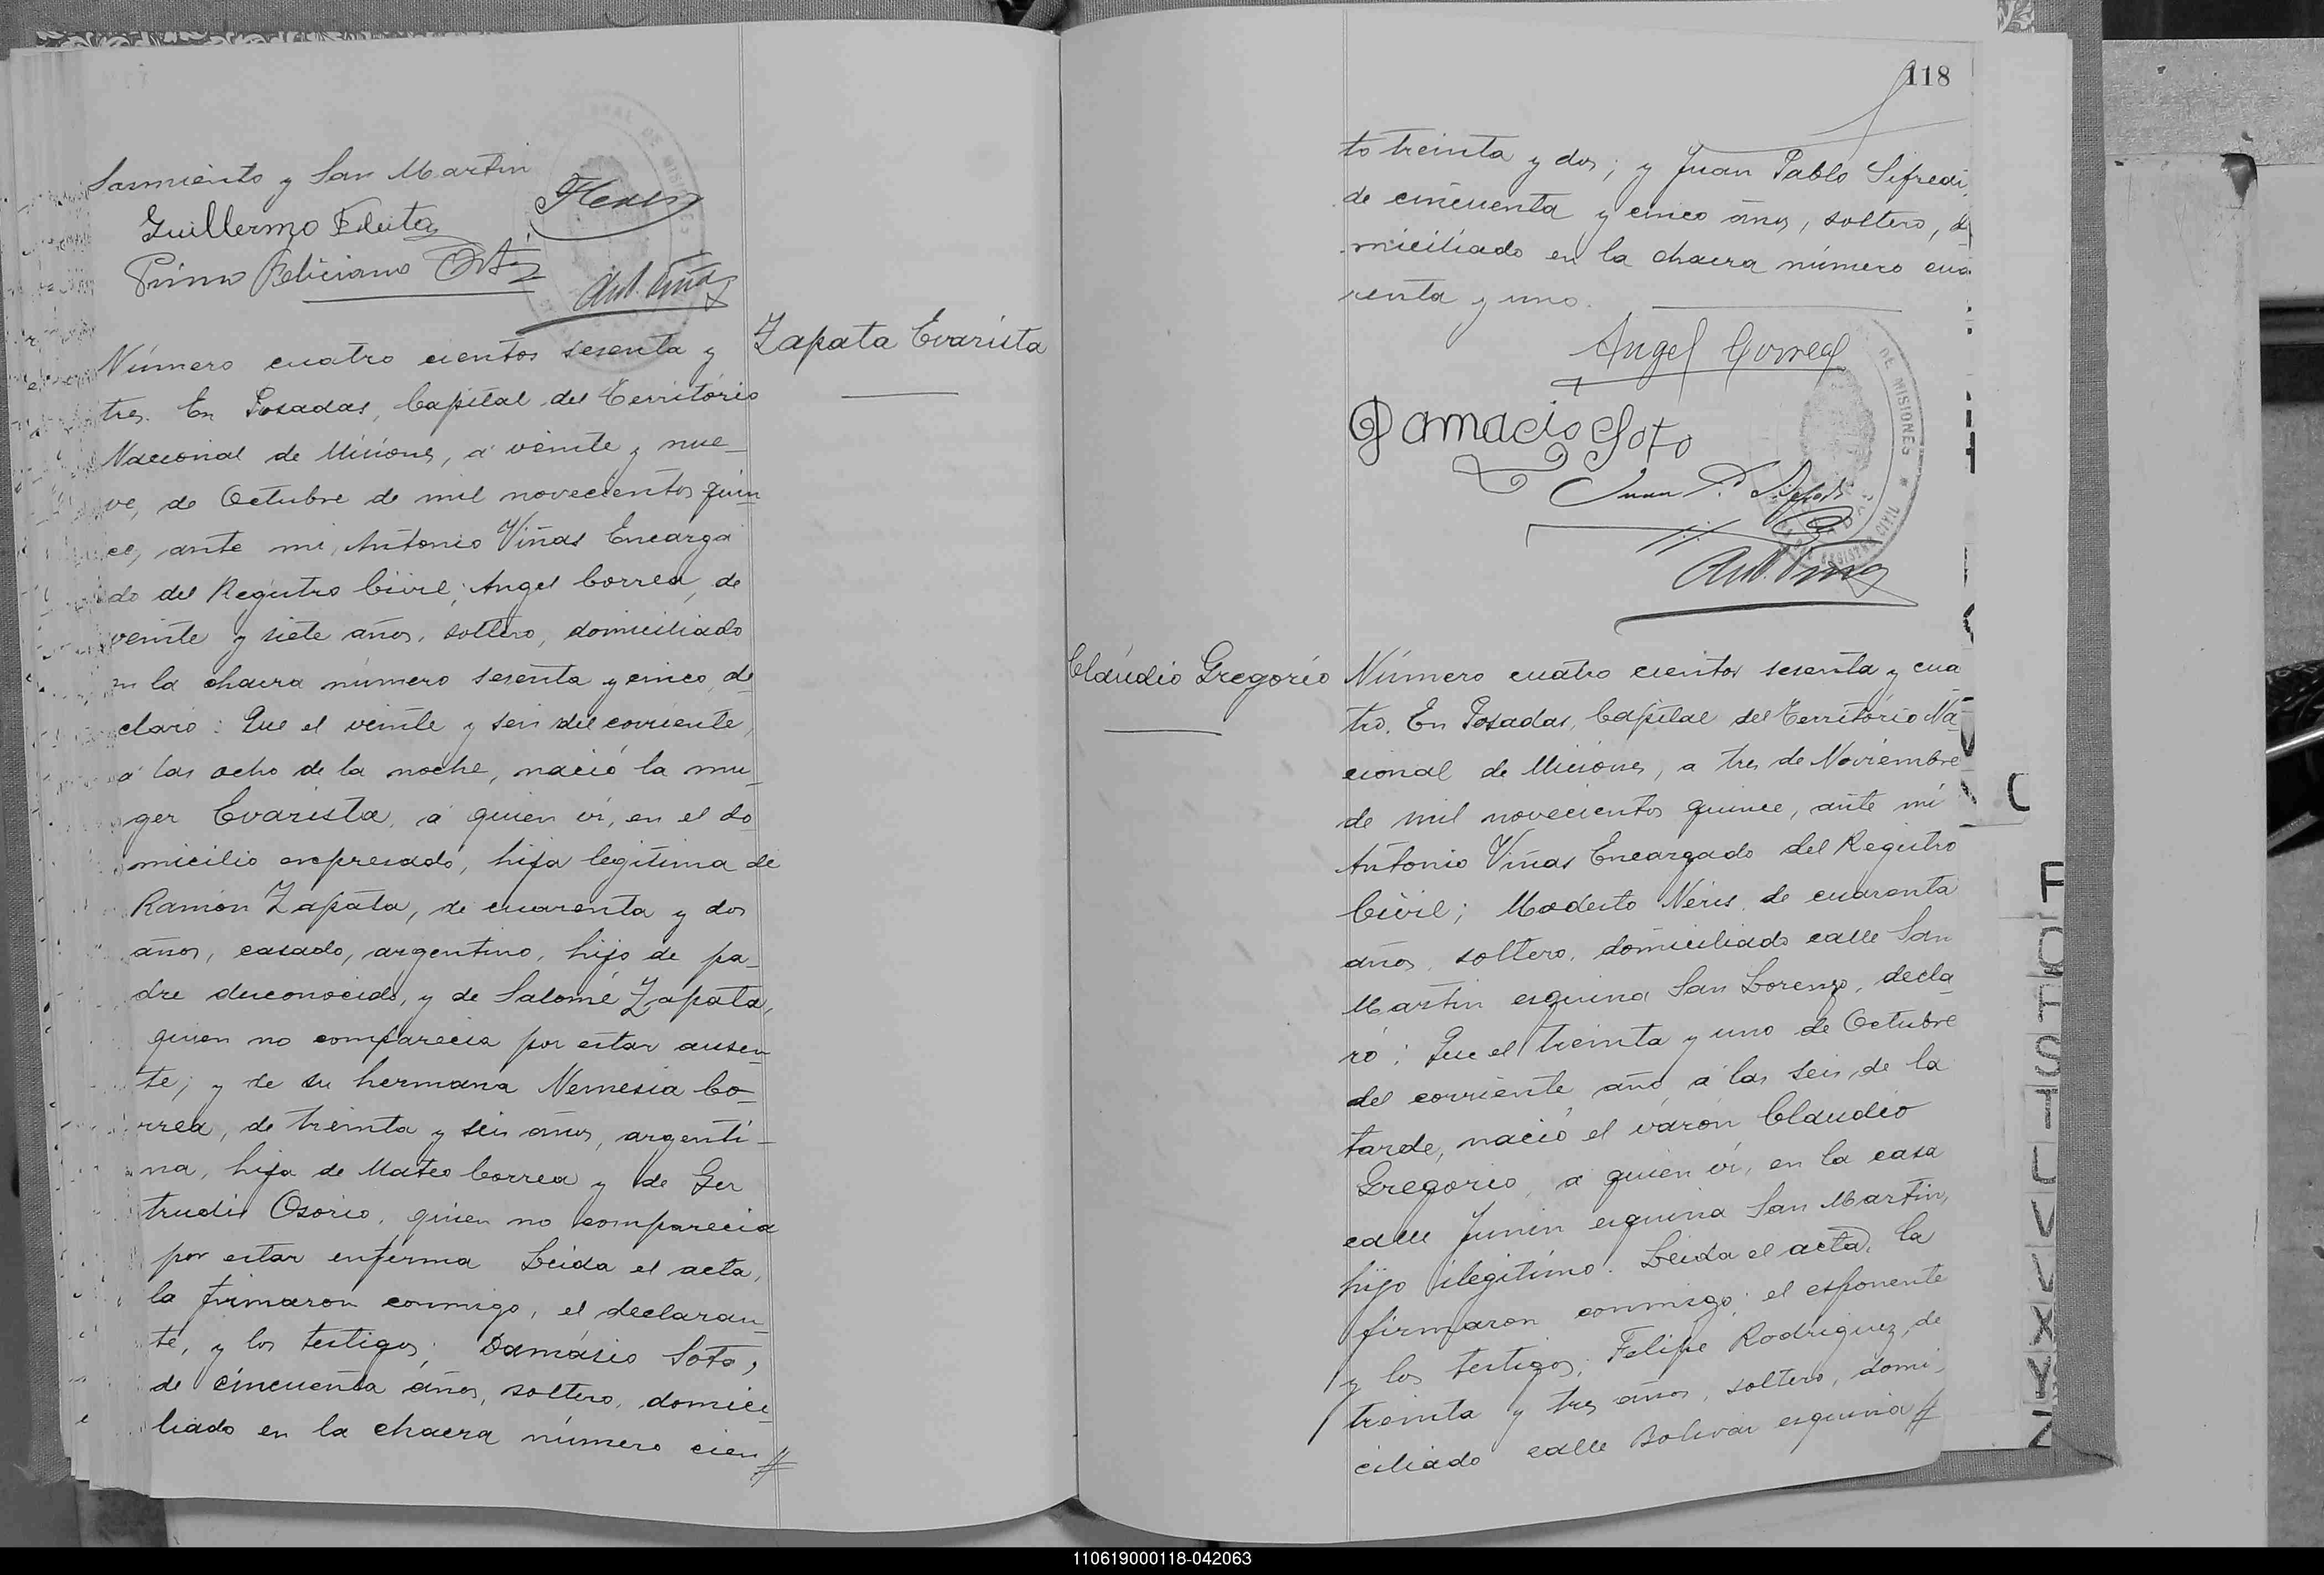 Sarmiento y San Martin
Guillermo Fleita
Primo Feliciano
Ant. Viñas
Zapata Evarista
Número cuatro cientos sesenta y
tres. En Posadas, Capital del Território
Nacional de Misiones, á veinte y nue_
ve, de Octubre de mil novecientos quin
ce, ante mi, Antonio Viñas Encarga
do del Registro Civil; Angel Correa, de
veinte y siete años, soltero, domiciliado
en la chacra número sesenta y cinco, de
claró: Que el veinte y seis del corriente,
á las ocho de la noche, nació la mu_
ger Evarista, á quien vi, en el do
micilio expresado, hija legitima de
Ramón Zapata, de cuarenta y dos
años, casado, argentino, hijo de pa_
dre desconocido, y de Salomé Zapata,
quien no comparecia por estar ausen_
te; y de su hermana Nemesia Co_
rrea, de treinta y seis años, argenti_
na, hija de Mateo Correa y de Ger
trudis Osorio, quien no comparecia
por estar enferma Leida el acta,
la firmaron conmigo, el declaran_
te, y los testigos; Damásio Soto,
de cincuenta años, soltero, domici_
liado en la chacra número cien//
118
to treinta y dos; y Juan Pablo Sifredi,
de cincuenta y cinco años, soltero, do
miciliado en la chacra número cua
renta y uno.
Angel Correa
Damacio Soto
Juan P. Sifredi
Ant. Viñas
DE MISIONES
REGISTRO CIVIL
Claudio Gregorio
Número cuatro cientos sesenta y cua
tro. En Posadas, Capital del Território Na_
cional de Misiones, a tres de Noviembre
de mil novecientos quince, ante mi
Antonio Viñas Encargado del Registro
Civil; Modesto Neris, de cuarenta
años, soltero, domiciliado calle San
Martin esquina San Lorenzo, decla_
ró: Que el treinta y uno de Octubre
del corriente año, á las seis de la
tarde, nació el varón Claudio
Gregorio, a quien vi, en la casa
calle Junin esquina San Martin,
hijo ilegitimo. Leida el acta, la
firmaron conmigo; el esponente
y los testigos; Felipe Rodriguez, de
treinta y tres años, soltero, domi_
ciliado calle Bolivar esquina//
C
R
S
T
U
V
X
Y
Z
110619000118-042063